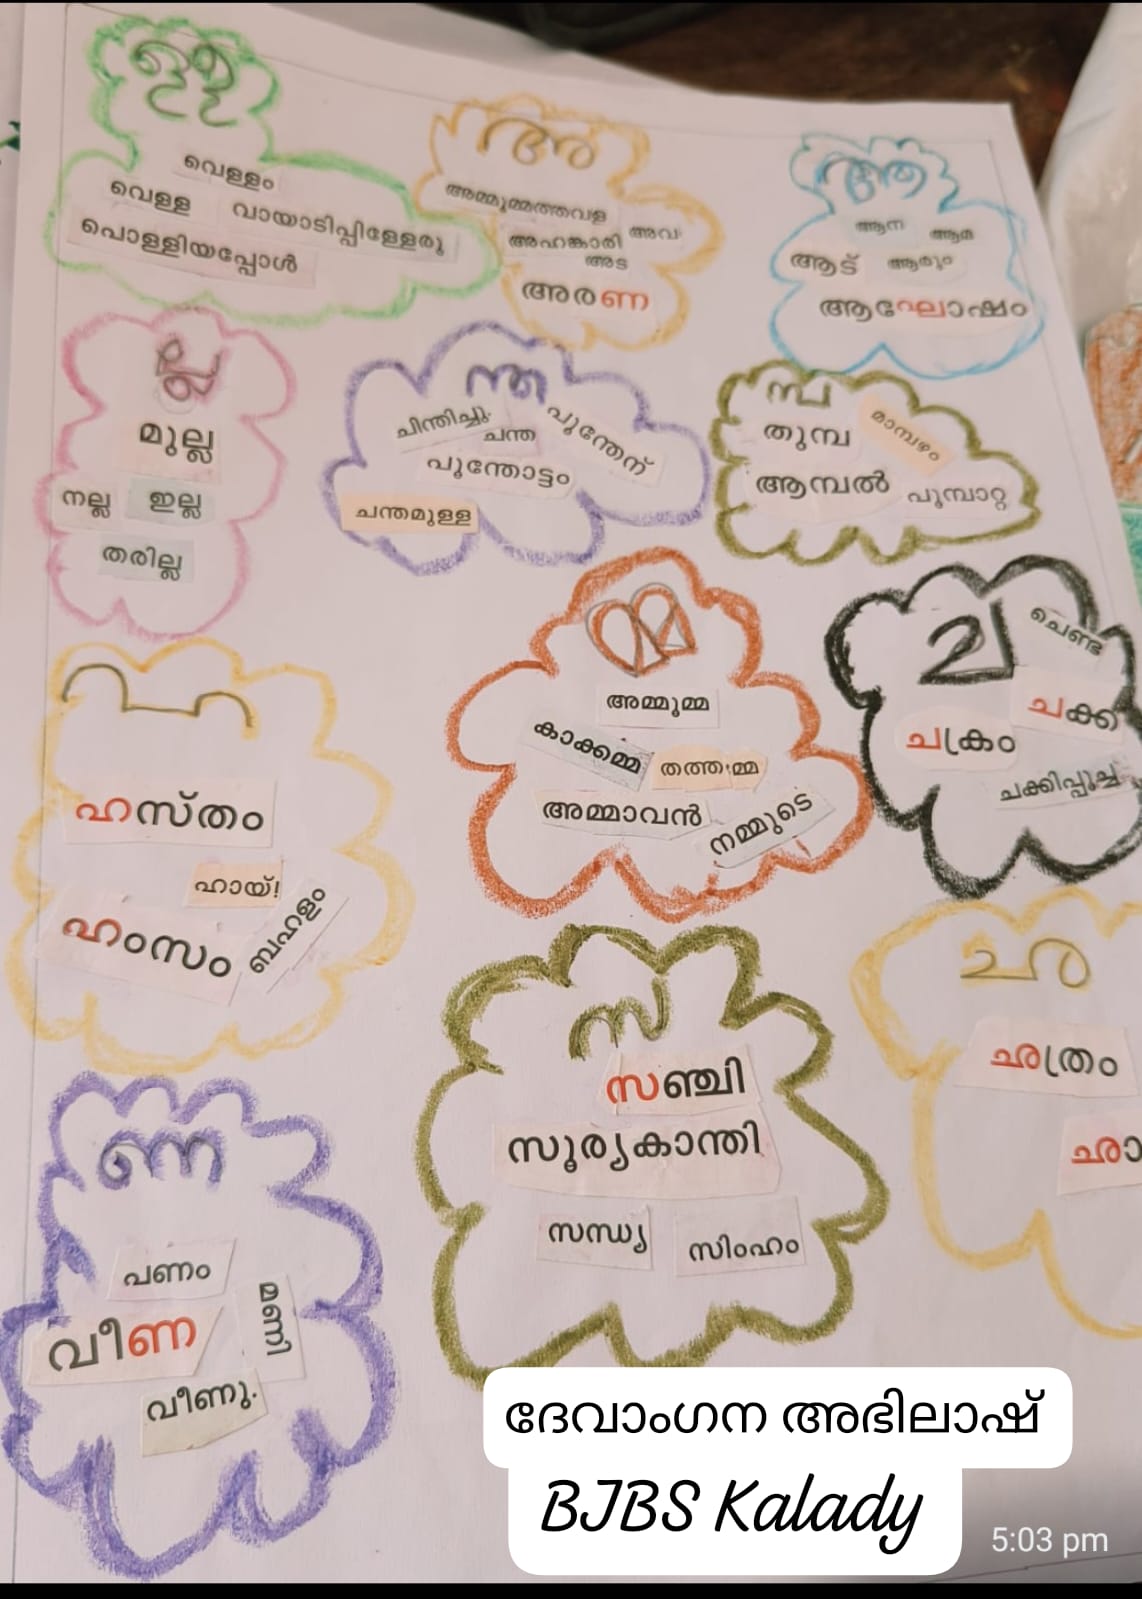 ള്ള
വെള്ളം
വെള്ള
വായാടിപ്പിള്ളേരു
പൊള്ളിയപ്പോൾ
അ
അമ്മൂമ്മത്തവള
അഹങ്കാരി
അവ
അട
അരണ
ആ
ആന
ആമ
ആട്
ആരും
ആഘോഷം
ല്ല
മുല്ല
നല്ല
ഇല്ല
തരില്ല
ന്ത
ചിന്തിച്ചു.
ചന്ത
പൂന്തേന്
പൂന്തോട്ടം
ചന്തമുള്ള
മ്പ
തുമ്പ
മാമ്പഴം
ആമ്പൽ
പൂമ്പാറ്റ
ഹ
ഹസ്തം
ഹായ്!
ഹംസം
ബഹളം
മ്മ
അമ്മൂമ്മ
കാക്കമ്മ
അമ്മാവൻ
നമ്മുടെ
ച
ചെണ്ട
ചക്ക
ചക്രം
ചക്കിപ്പൂച്ച
ണ
പണം
മണി
വീണ
വീണു.
സ
സഞ്ചി
സൂര്യകാന്തി
സന്ധ്യ
സിംഹം
ഛ
ഛത്രം
ദേവാംഗന അഭിലാഷ്
BJBS Kalady
5:03 pm